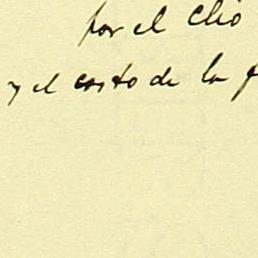 por el Clio
y el costo de la